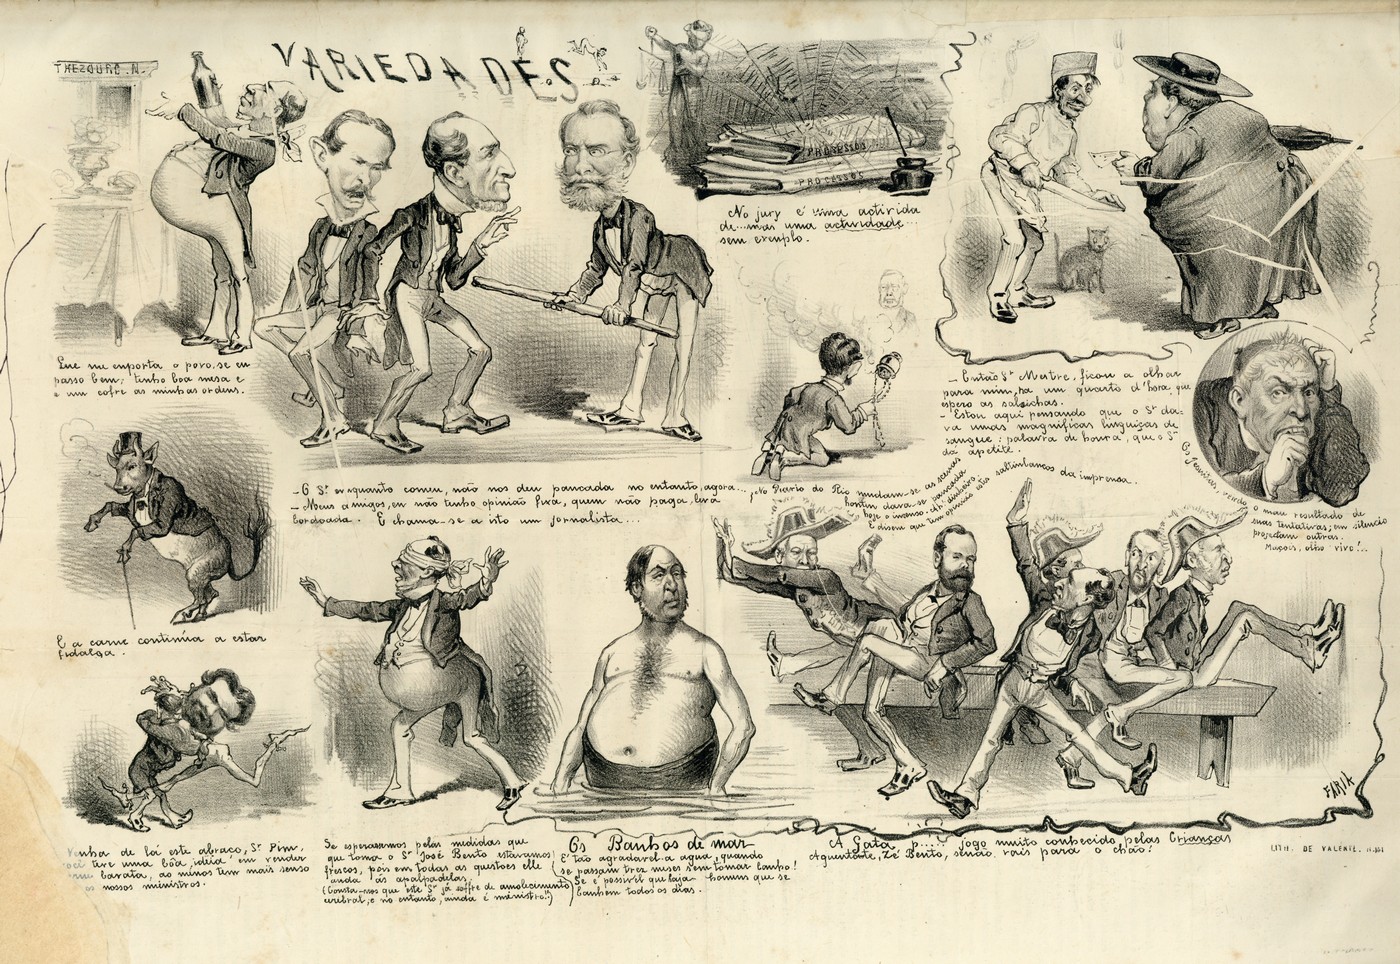 VARIEDADES
THEZOURO. N.
Que me emporta o povo, se eu
passo bem; tenho boa mesa e
e um cofre ás minhas ordens.
PROCESSOS
PROCESSOS
No jury é uma activida
de...mas uma actividade...
sem exemplo.
— Então Sr Mestre, ficou a olhar
para mim, ha um quarto d'hora, que
espero as salsichas.
— Estou aqui pensando que o Sr da-
va umas magnificas linguiças de
sangue: palavra de honra, que o Sr
dá apetite.
Os Jesuitas, vendo o mau resultado de
suas tentativas; em silencio
projectam outras.
Maçons, olho vivo!..
— O Sr enquanto comeu, não nos deu pancada no entanto, agora...
— Meus amigos, eu não tenho opinião fixa, quem não paga, leva
bordoada. E chama-se a isto um jornalista...
No Diario do Rio mudam-se as scenas
hontem dava-se pancada
hoje o incenso. dê dinheiro
E dizem que tem opiniões
saltimbancos da imprensa.
E a carne continúa a estar
fidalga.
Venha de lá este abraço, Sr Pim,
teve uma bôa idéia em vender
barata, ao menos tem mais senso
os nossos ministros.
Se esperassemos, pelas medidas que
que toma o Sr José Bento estavamos
frescos, pois em todas as questões elle
anda ás apalpadelas.
(Consta-nos que este Sr já soffre de amolecimento
cerebral; e no entanto, ainda é ministro!!)
Os Banhos de mar
E' tão agradavel a agua, quando
se passam tres mises sem tomar banho!
Se é possivel que haja homens que se
banhem todos os dias.
A Gata p..... jogo muito conhecido pelas Crianças
Aguentate, Zé Bento, senão, vais para o chão!
FARIA
LITH. DE VALELLE.